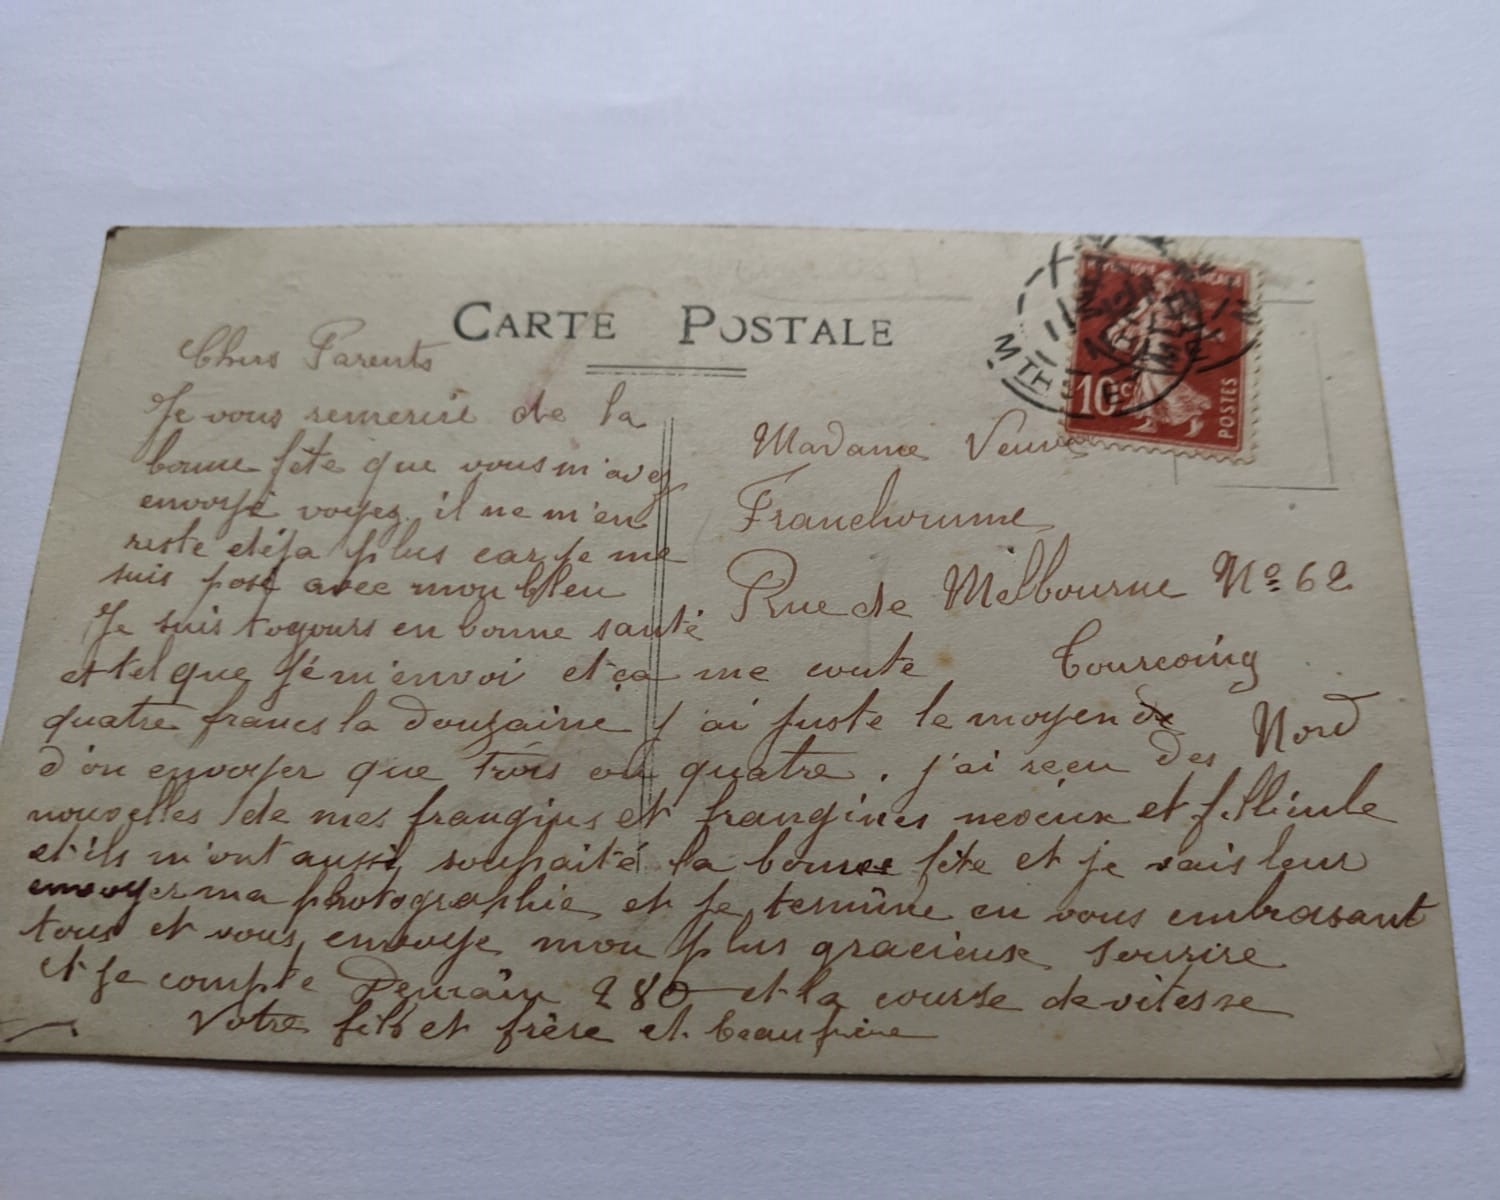 CARTE POSTALE
Chers Parents
Je vous remercie de la
bonne fête que vous m'avez
envoyé voyez il ne m'en
reste déja plus car je me
suis posé avec mon bleu
Je suis togours en bonne santé
et tel que je m'envoi et ça me coute
quatre francs la douzaine j'ai juste le moyen de
d'on envoyer que trois ou quatre. j'ai recu des
nouvelles de mes frangins et frangines neveux et
et ils m'ont aussi souhaité la bonne fête et je vais leur
envoyer ma photographie et je termine en vous embrasant
tous et vous envoye mon plus gracieux sourire
et je compte Demain 280 et la course de vitesse
Votre fils et frère et beau frère
Madame Veuve
Franchomme
Rue de Melbourne No 62
Tourcoing
Nord
10c
POSTES